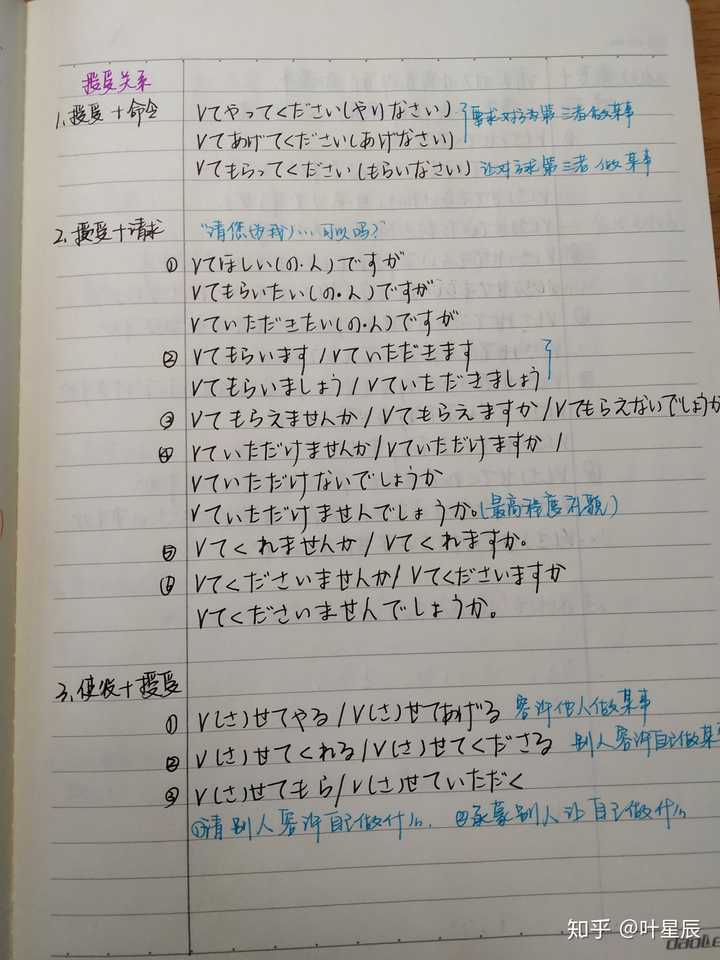 授受关系
1.授受+命令 Vてやってください(やりなさい) 要求对方为第三者做某事
Vてあげてください(あげなさい)
Vてもらってください(もらいなさい) 让对方求第三者做某事
2.授受+请求 "请您(为我)…可以吗?"
① Vてほしい(の・ん)ですが
Vてもらいたい(の・ん)ですが
Vていただきたい(の・ん)ですが
② Vてもらいます/Vていただきます
Vてもらいましょう/Vていただきましょう
③ Vてもらえませんか/Vてもらえますか/Vてもらえないでしょうか
④ Vていただけませんか/Vていただけますか/
Vていただけないでしょうか
Vていただけませんでしょうか。(最高程度礼貌)
⑤ Vてくれませんか/Vてくれますか。
⑥ Vてくださいませんか/Vてくださいますか
Vてくださいませんでしょうか。
3.使役+授受
① V(さ)せてやる/V(さ)せてあげる 容许他人做某事
② V(さ)せてくれる/V(さ)せてくださる 别人容许自己做某
③ V(さ)せてもら/V(さ)せていただく
①请别人容许自己做什么. ②承蒙别人让自己做什么
知乎 @叶星辰